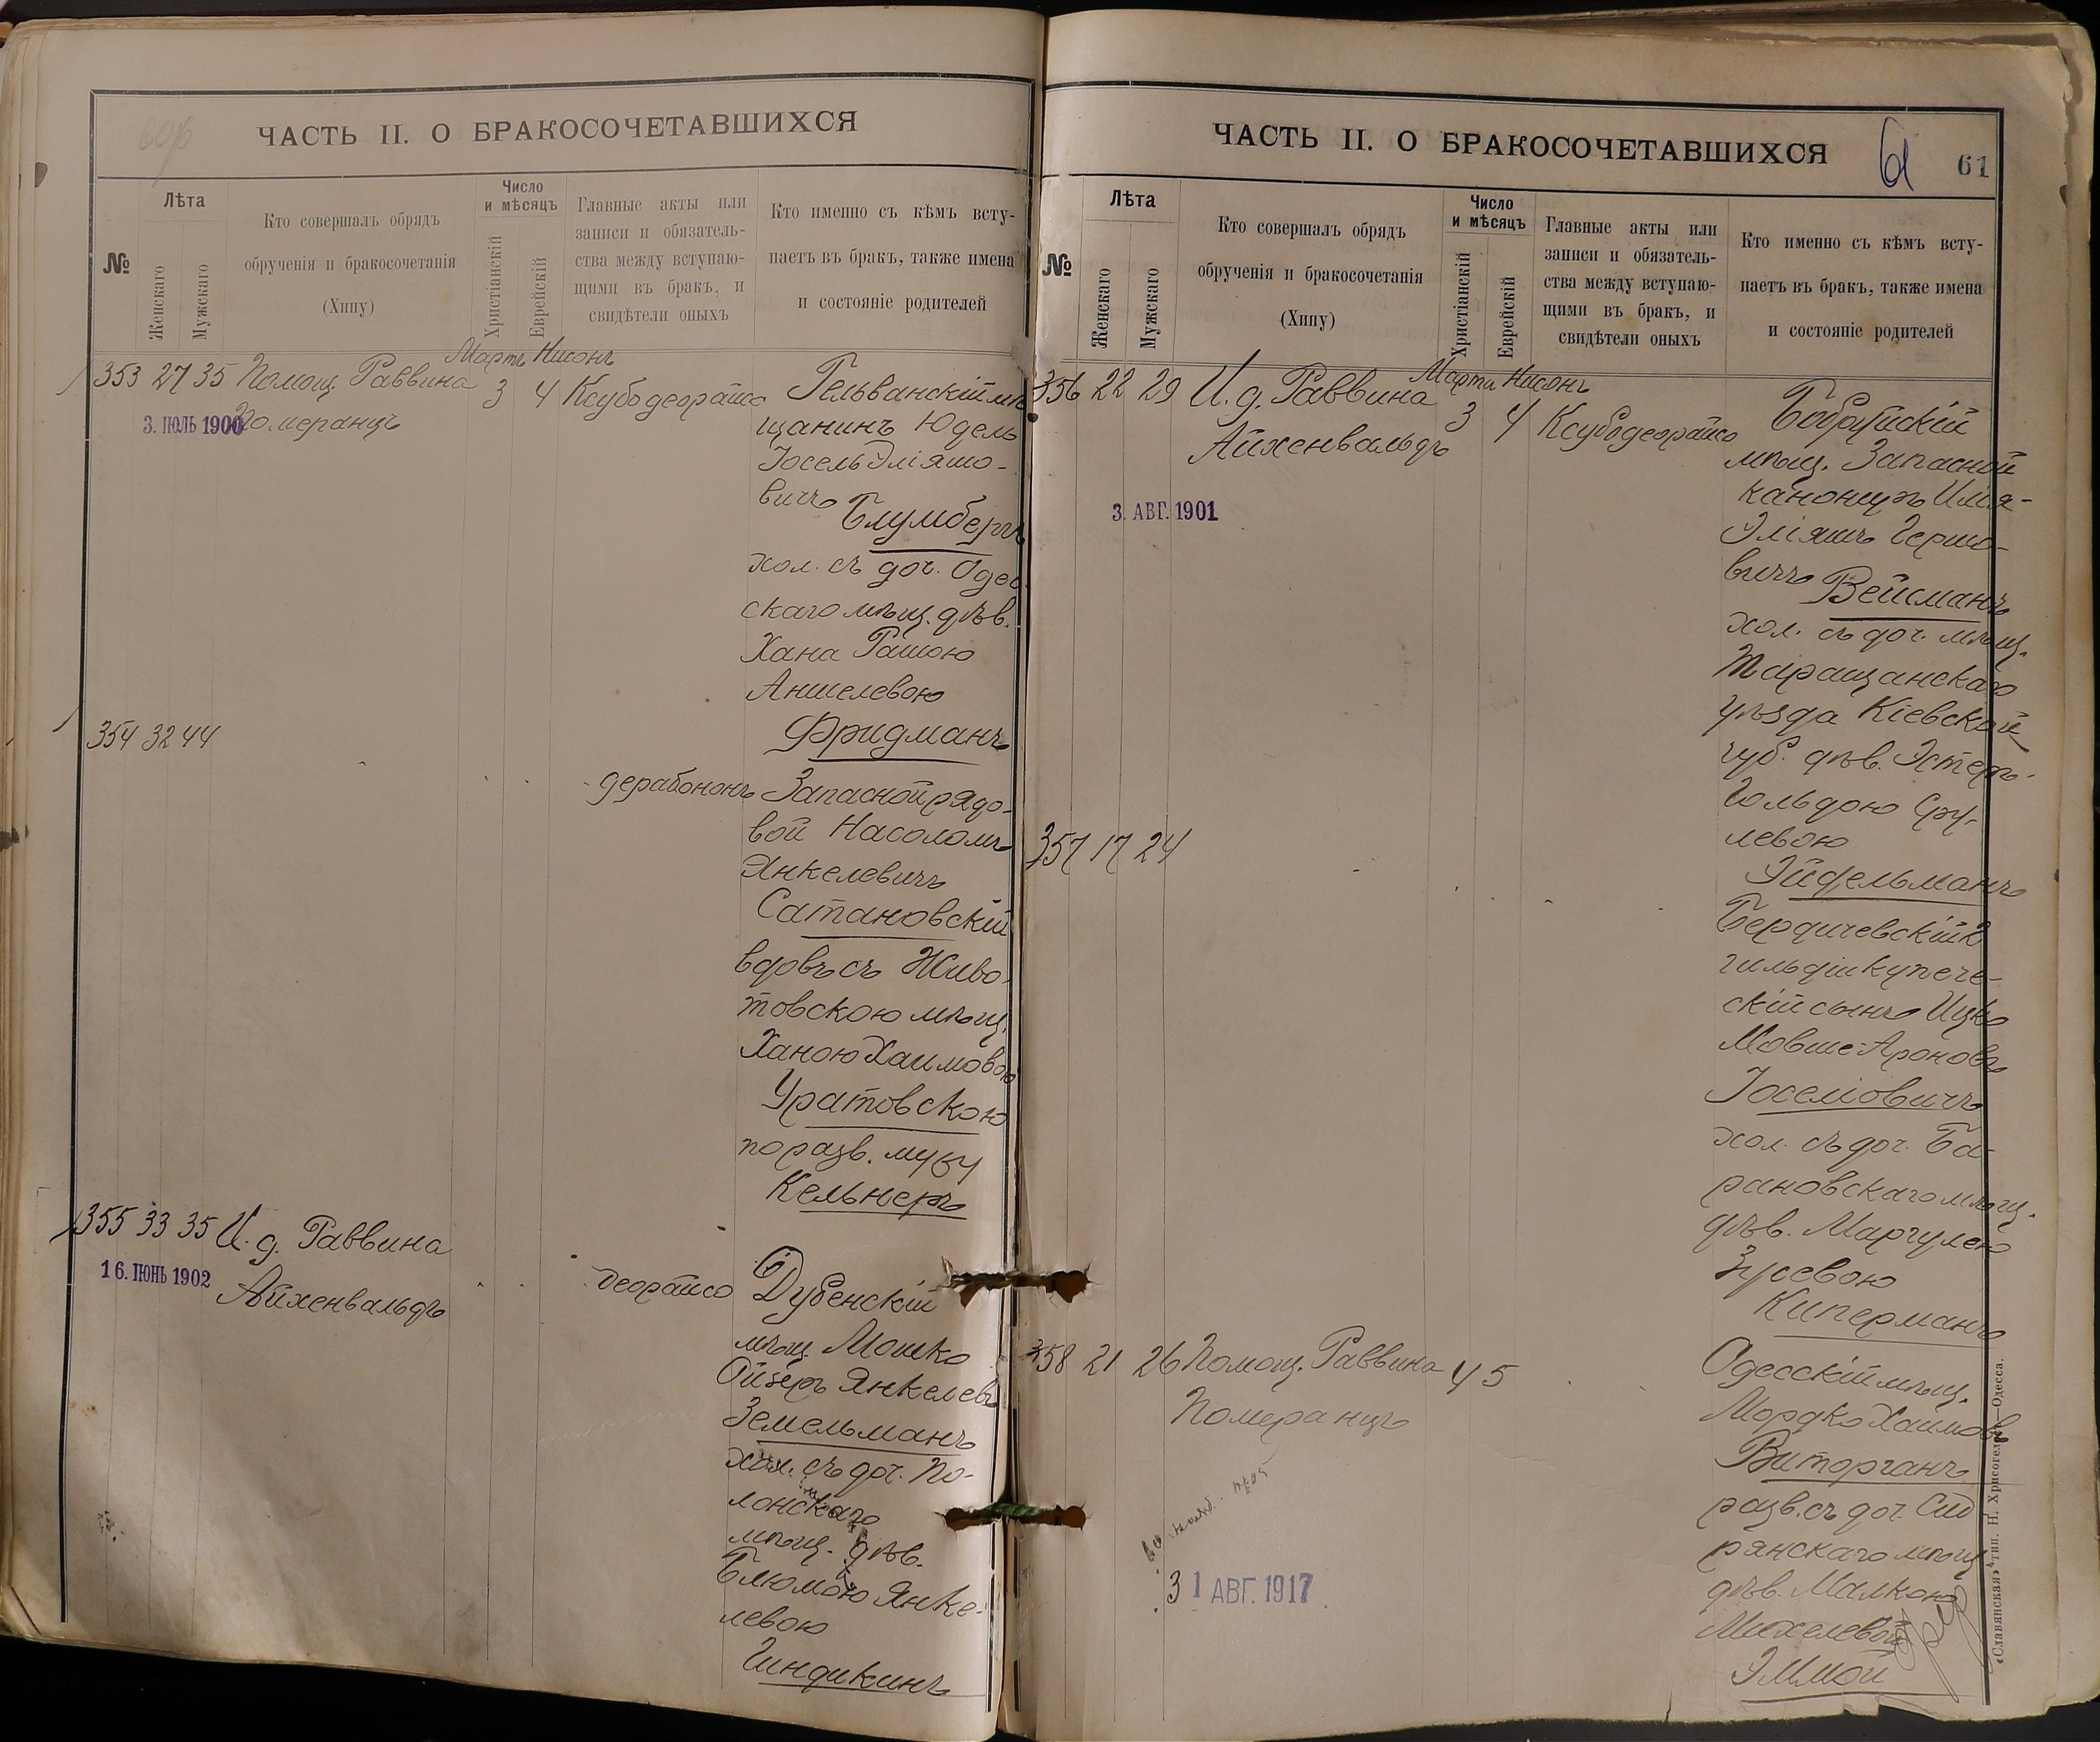 ЧАСТЬ II. О БРАКОСОЧЕТАВШИХСЯ
№
Лѣта
Женскаго
Мужскаго
Кто совершалъ обрядъ
обрученія и бракосочетанія
(Хипу)
Число
и мѣсяцъ
Христіанскій
Еврейскій
Главные акты или
записи и обязатель-
ства между вступаю-
щими въ бракъ, и
свидѣтели оныхъ
Кто именно съ кѣмъ всту-
паетъ въ бракъ, также имена
и состояніе родителей
Мартъ Нисонъ
353 27 35 Помощ. Раввина 3 4 Ксубодеорайсо
3. ІЮЛЬ 1900 Померанцъ
Гельванскій мѣ
щанинъ Юдель
Іосель Эліяшо-
вичъ
Блумбергъ
хол. съ доч. Одес
скаго мѣщ. дѣв.
Хана Рашою
Аншелевою
Фридманъ
354 32 44
дерабононъ Запасной рядо-
вой Насоломъ
Янкелевичъ
Сатановскій
вдовъ съ Живо-
товскою мѣщ.
Ханою Хаимовою
Уратовскою
по разв. мужу
Кельнеръ
355 33 35 И. д. Раввина
16. ІЮНЬ 1902 Айхенвальдъ
деорайсо Дубенскій
мѣщ. Мошко
Ойзеръ Янкелевъ
Земельманъ
хол. съ доч. По-
лонскаго
мѣщ. дѣв.
Блюмою Янке-
левою
Гиндикинъ
ЧАСТЬ II. О БРАКОСОЧЕТАВШИХСЯ
61
61
№
Лѣта
Женскаго
Мужскаго
Кто совершалъ обрядъ
обрученія и бракосочетанія
(Хипу)
Число
и мѣсяцъ
Христіанскій
Еврейскій
Главные акты или
записи и обязатель-
ства между вступаю-
щими въ бракъ, и
свидѣтели оныхъ
Кто именно съ кѣмъ всту-
паетъ въ бракъ, также имена
и состояніе родителей
Марта Нисонъ
356 22 29 И. д. Раввина 3 4 Ксубодеорайсо
Айхенвальдъ
3. АВГ. 1901
Бобруйскій
мѣщ. Запасной
канониръ
Эліяшъ Гершо-
вичъ Вейсманъ
хол. съ доч. мѣщ.
Таращанскаго
уѣзда Кіевской
губ. дѣв. Эстеръ-
Гольдою Сру-
левою
Эйдельманъ
357 17 24
Бердичевскій 2
гильдіи купече-
скій сынъ Ицко
Мовше-Ароновъ
Іоселіовичъ
хол. съ доч. Ба-
рановскаго мѣщ.
дѣв. Маргулею
Зусевою
Киперманъ
358 21 26 Помощ. Раввина 4 5
Померанцъ
31 АВГ. 1917
Одесскій мѣщ.
Мордко Хаимовъ
Виторганъ
разв. съ доч. Сты
рянскаго мѣщ
дѣв. Малкою
Михелевой
Эммой
«Славянская» тип. Н. Хрисогелосъ, Одесса.